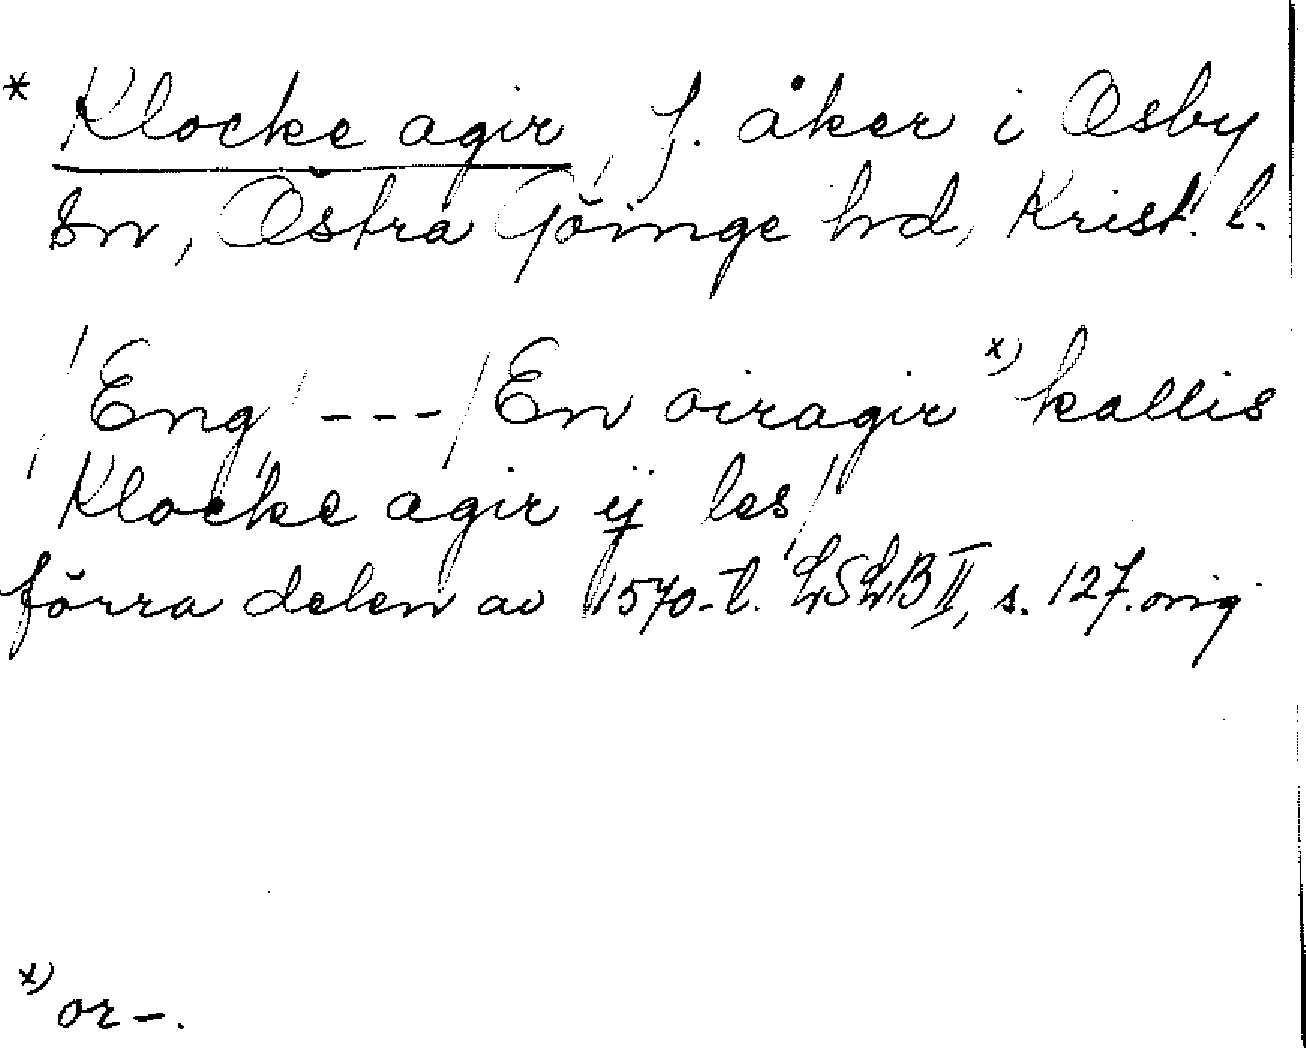 * Klocke agir, f. åker i Osby
sn, Östra Göinge hd, Krist. l.
/Eng/ ---/En oiragir x) kallis
Klocke agir ij les/
förra delen av 1570-t. LSLB II, s. 127. orig
x) or-.